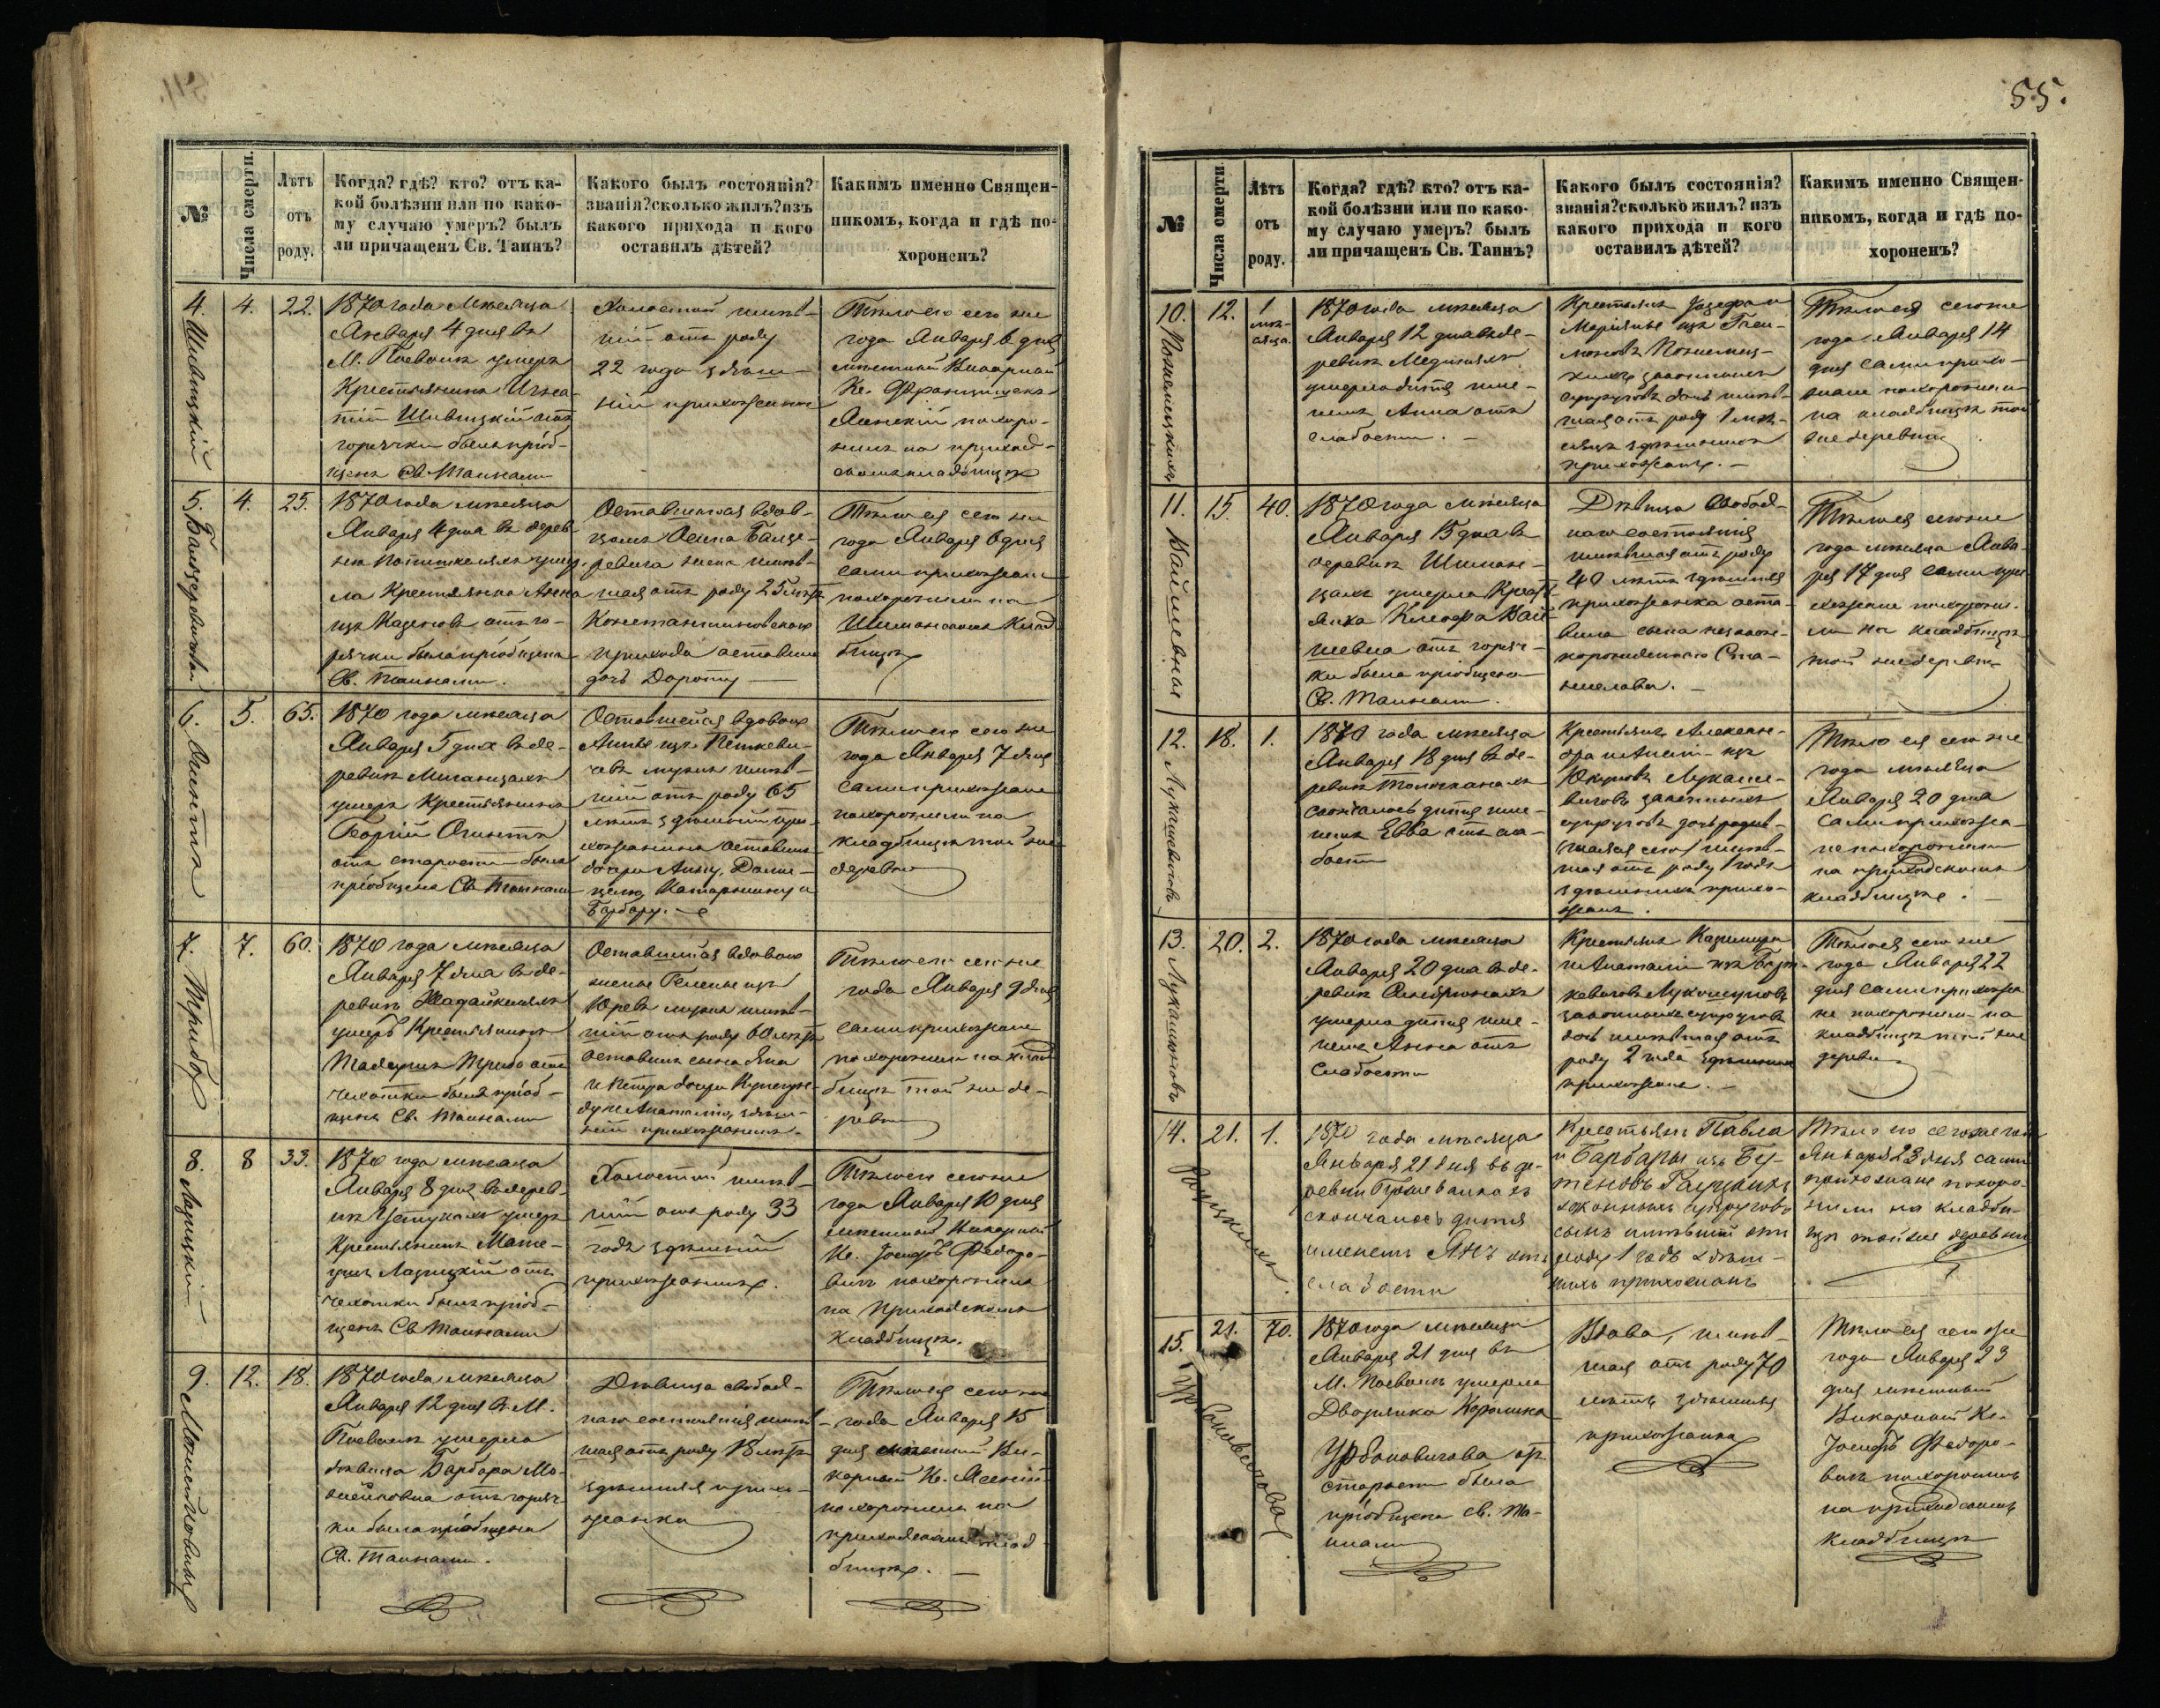 55.
№
Числа смерти.
Лѣтъ
отъ
роду.
Когда? гдѣ? кто? отъ ка-
кой болѣзни или по како-
му случаю умеръ? былъ
ли причащенъ Св. Таинъ?
Какого былъ состоянія?
званія? сколько жилъ? изъ
какого прихода и кого
оставилъ дѣтей?
Какимъ именно Священ-
никомъ, когда и гдѣ по-
хороненъ?
4.
4.
22.
1870 года мѣсяца
Января 4 дня въ
М. умеръ
Крестьянинъ Игна-
тій Шивицкій отъ
горячки былъ пріоб-
щенъ Св. Тайнами
Холостой жив-
шій отъ роду
22 года здѣш-
ній прихожанинъ
Тѣло его сего же
года Января 6 дня
мѣстный Викарный
Кс. Францишекъ
похоро-
нилъ на приход-
скомъ кладбищѣ
5.
4.
25.
1870 года мѣсяца
Января 4 дня въ дерев-
нѣ умер-
ла Крестьянка Анна
изъ отъ го-
рячки была пріобщена
Св. Тайнами.
Оставшагося вдов-
цемъ Осипа Балце-
ревича жена жив-
шая отъ роду 25 лѣтъ
Константиновскаго
прихода оставила
дочь Дороту
Тѣло ея сего же
года Января 6 дня
сами прихожане
похоронили на
клад-
бищѣ
6.
5.
65.
1870 года мѣсяца
Января 5 дня въ де-
ревнѣ
умеръ Крестьянинъ
отъ старости былъ
пріобщенъ Св. Тайнами
Оставшейся вдовою
Анны изъ Петкеви-
чевъ мужъ жив-
шій отъ роду 65
лѣтъ здѣшній при-
хожанинъ оставилъ
дочери Анну,
Катарину и
Барбару.
Тѣло его сего же
года Января 7 дня
сами прихожане
похоронили на
кладбищѣ той же
деревни
7. Трибо
7.
60.
1870 года мѣсяца
Января 7 дня въ де-
ревнѣ
умеръ Крестьянинъ
Тадеушъ Трибо отъ
чахотки былъ пріоб-
щенъ Св. Тайнами
Оставшейся вдовою
жены изъ
Юревъ мужъ жив-
шій отъ роду 60 лѣтъ
оставилъ сына Яна
и Петра дочери
и Анатолію, здѣш-
ній прихожанинъ.
Тѣло его сего же
года Января 9 дня
сами прихожане
похоронили на клад-
бищѣ той же де-
ревни
8. Лазицкій
8
33.
1870 года мѣсяца
Января 8 дня въ дерев-
нѣ умеръ
Крестьянинъ Мате-
ушъ Лазицкій отъ
чахотки былъ пріоб-
щенъ Св. Тайнами
Холостой жив-
шій отъ роду 33
года здѣшній
прихожанинъ.
Тѣло его сего же
года Января 10 дня
мѣстный Викарный
Кс. Іосифъ Федоро-
вичъ похоронилъ
на приходскомъ
кладбищѣ.
9.
12.
18.
1870 года мѣсяца
Января 12 дня въ М.
умерла
дѣвица Барбара Мо-
отъ горяч-
ки была пріобщена
Св. Тайнами.
Дѣвица свобод-
наго состоянія жив-
шая отъ роду 18 лѣтъ
здѣшняя прихо-
жанка
Тѣло ея сего же
года Января 15
дня мѣстный Ви-
карный Кс.
похоронилъ на
приходскомъ клад-
бищѣ.
№
Числа смерти.
Лѣтъ
отъ
роду.
Когда? гдѣ? кто? отъ ка-
кой болѣзни или по како-
му случаю умеръ? былъ
ли причащенъ Св. Таинъ?
Какого былъ состоянія?
званія? сколько жилъ? изъ
какого прихода и кого
оставилъ дѣтей?
Какимъ именно Священ-
никомъ, когда и гдѣ по-
хороненъ?
10.
12.
1
мѣ-
сяца.
1870 года мѣсяца
Января 12 дня въ де-
ревнѣ
умерла дитя име-
немъ Анна отъ
слабости.
Крестьянъ Іозефа и
Маріянны изъ
законныхъ
супруговъ дочь жив-
шая отъ роду 1 мѣ-
сяцъ здѣшнихъ
прихожанъ.
Тѣло ея сего же
года Января 14
дня сами прихо-
жане похоронили
на кладбищѣ той
же деревни
11.
15.
40.
1870 года мѣсяца
Января 15 дня въ
деревнѣ
умерла Крестьянка
отъ горяч-
ки была пріобщена
Св. Тайнами.
Дѣвица свобод-
наго состоянія
жившая отъ роду
40 лѣтъ здѣшняя
прихожанка оста-
вила сына незаконно-
рожденнаго Ста-
нислава.
Тѣло ея сего же
года мѣсяца Янва-
ря 17 дня сами при-
хожане похорони-
ли на кладбищѣ
той же деревни
12. Лукашевичовъ
18.
1.
1870 года мѣсяца
Января 18 дня въ де-
ревнѣ
скончалось дитя име-
немъ Евва отъ сла-
бости
Крестьянъ Алексан-
дра и изъ
Лукаше-
вичовъ законныхъ
супруговъ дочь
жив-
шая отъ роду 1 годъ
здѣшнихъ прихо-
жанъ.
Тѣло ея сего же
года мѣсяца
Января 20 дня
сами прихожа-
не похоронили
на приходскомъ
кладбищѣ.
13.
20.
2.
1870 года мѣсяца
Января 20 дня въ де-
ревнѣ
умерла дитя име-
немъ Анна отъ
слабости
Крестьянъ Казимира
и Анатоліи изъ
законныхъ супруговъ
дочь жившая отъ
роду 2 года здѣшнихъ
прихожанъ.
Тѣло ея сего же
года Января 22
дня сами прихожа-
не похоронили на
кладбищѣ той же
деревни
14.
21.
1.
1870 года мѣсяца
Января 21 дня въ де-
ревни
скончалось дитя
именемъ Янъ отъ
слабости
Крестьянъ Павла
и Барбары изъ Бу-
законныхъ супруговъ
сынъ жившій отъ
роду 1 годъ здѣш-
нихъ прихожанъ
Тѣло его сего же года
Января 23 дня сами
прихожане похоро-
нили на кладби-
щѣ той же деревни
15. Урбановичова
21.
70.
1870 года мѣсяца
Января 21 дня въ
М. умерла
Дворянка Каролина
Урбановичова отъ
старости была
пріобщена Св. Та-
инами
Вдова, жив-
шая отъ роду 70
лѣтъ здѣшняя
прихожанка
Тѣло ея сего же
года Января 23
дня мѣстный
Викарный Кс.
Іосифъ Федоро-
вичъ похоронилъ
на приходскомъ
кладбищѣ